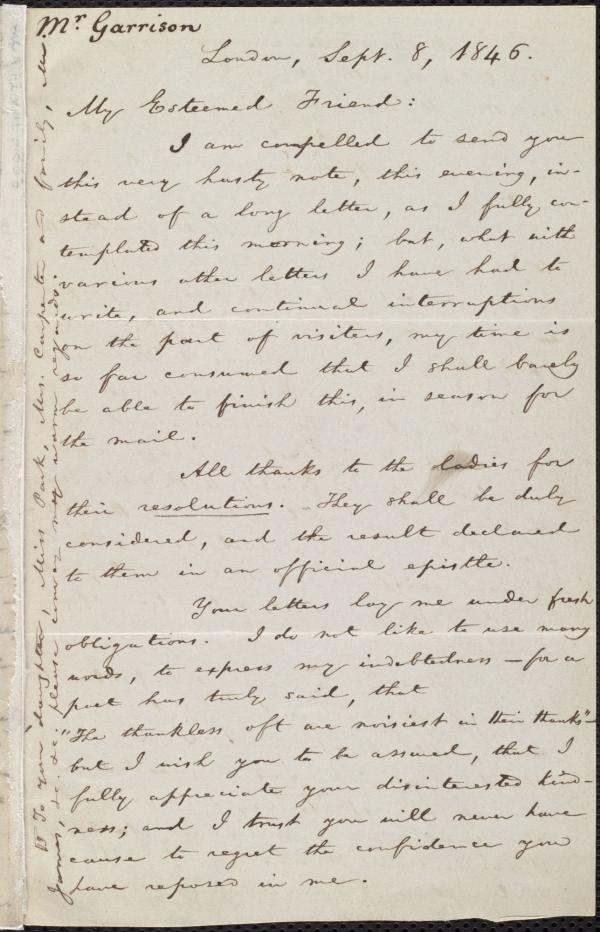 Mr. Garrison
London, Sept. 8, 1846.
My Esteemed Friend:
I am compelled to send you
this very hasty note, this evening, in-
stead of a long letter, as I fully con-
templated this morning; but, what with
various other letters I have had to
write, and continual interruptions
on the part of visiters, my time is
so far consumed that I shall barely
be able to finish this, in season for
the mail.
All thanks to the ladies for
their resolutions. They shall be duly
considered, and the result declared
to them in an official epistle.
Your letters lay me under fresh
obligations. I do not like to use many
words, to express my indebtedness — for a
poet has truly said, that
"The thankless oft are noisiest in their thanks" —
but I wish you to be assured, that I
fully appreciate your disinterested kind-
ness; and I trust you will never have
cause to regret the confidence you
have reposed in me.
To your daughter, Miss Park, Mrs. Carpenter and family, Mr
James, &c. &c. please convey my warm regards.